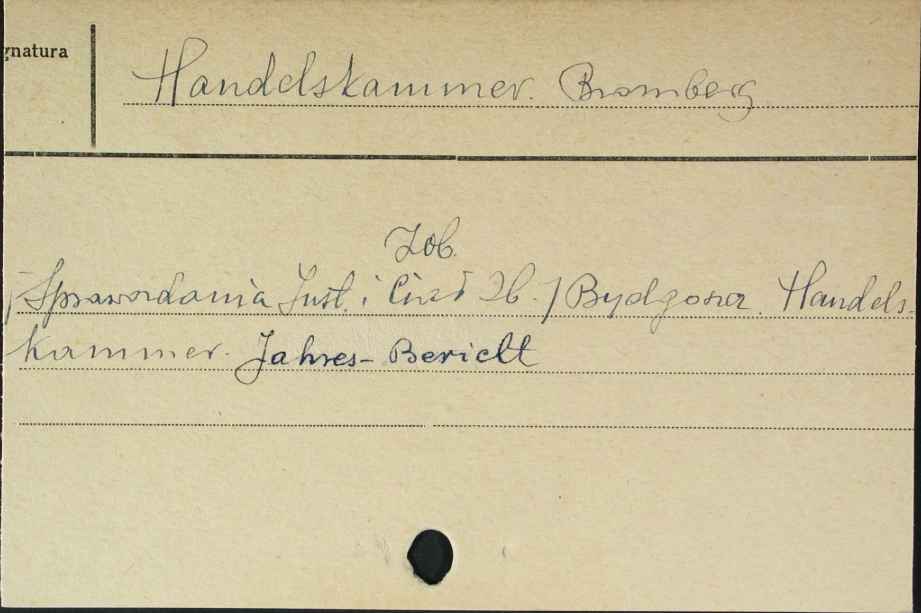 gnatura
Handelskammer. Bromberg
Zob.
/Sprawozdania Inst. i Zb./ Bydgoszcz. Handels-
kammer. Jahres-Bericht